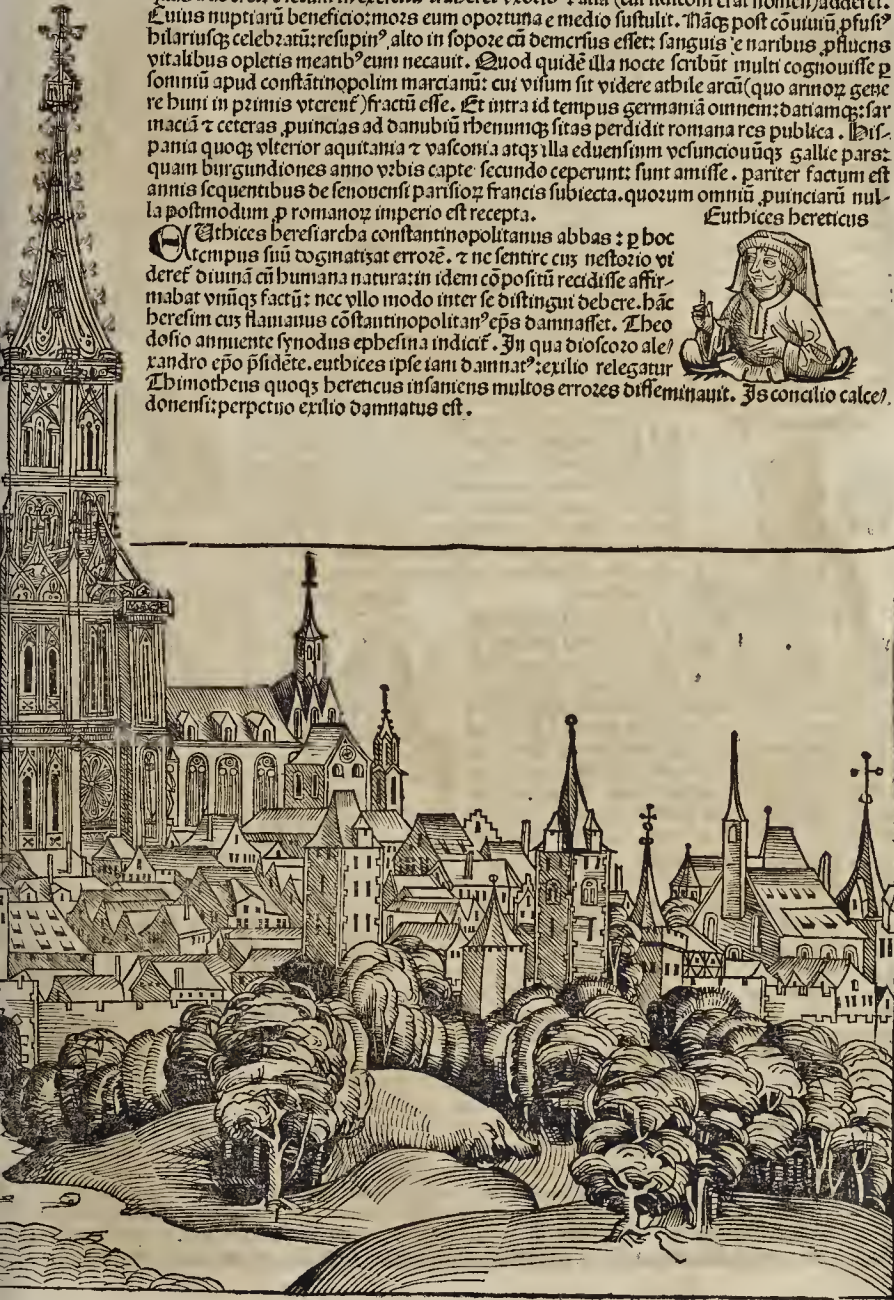 Euius nuptiarū beneficio:mors eum oportuna e medio sustulit. Nāq̄ post cōuiuiū ꝓfusiꝰ
hilariusq̄ celebratū:resupinꝰ alto in sopore cū demersus esset: sanguis e naribus ꝓfluens
vitalibus opletis meatibꝰ eum necauit. Quod quidē illa nocte scribūt multi cognouisse ꝑ
somniū apud constātinopolim marcianū: cui visum sit videre athile arcū(quo armoꝝ gene
re huni in primis vterent᷑)fractū esse. Et intra id tempus germaniā omnem:datiamq̄:sar
maciā ⁊ ceteras ꝓuincias ad danubiū rhenumq̄ sitas perdidit romana res publica. His-
pania quoqꝫ vlterior aquitania ⁊ vasconia atqꝫ illa eduensium vesunciouūqꝫ gallie pars:
quam burgundiones anno vrbis capte secundo ceperunt: sunt amisse. pariter factum est
annis sequentibus de senonensi parisioꝝ francis subiecta. quorum omniū ꝓuinciarū nul-
la postmodum ꝑ romanoꝝ imperio est recepta.
Euthices hereticus
EUthices heresiarcha constantinopolitanus abbas : ꝑ hoc
tempus suū dogmatizat errorē. ⁊ ne sentire cuꝫ nestorio vi
deret᷑ diuinā cū humana natura:in idem cōpositū recidisse affir-
mabat vnūqꝫ factū: nec vllo modo inter se distingui debere. hāc
heresim cuꝫ flauianus cōstantinopolitanꝰ eꝑs damnasset. Theo
dosio annuente synodus ephesina indicit᷑. In qua dioscoro ale/
xandro eꝑo p̄sidēte. euthices ipse iam damnatꝰ:exilio relegatur
Thimotheus quoqꝫ hereticus insaniens multos errores disseminauit. Is concilio calce/
donensi:perpetuo exilio damnatus est.